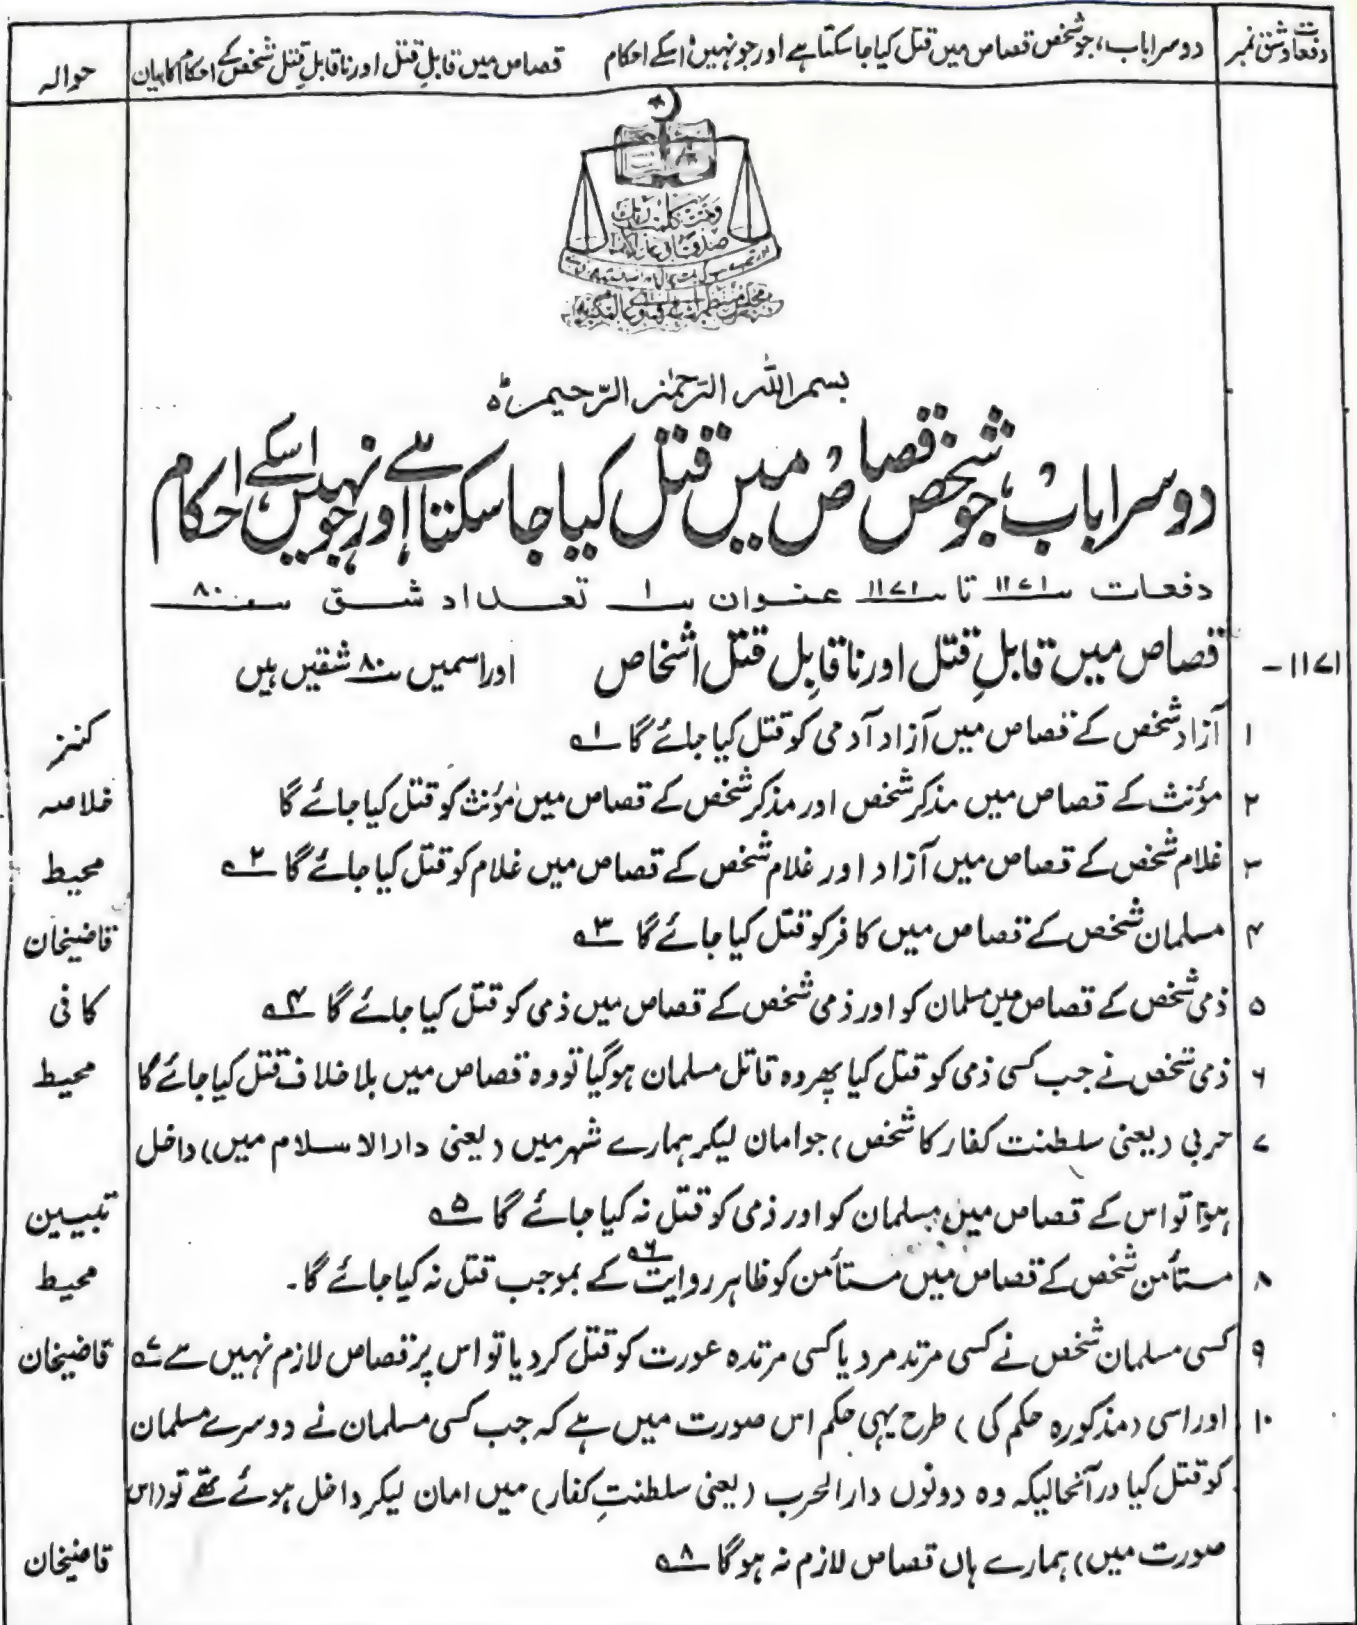 دفعات و شق نمبر | دوسرا باب، جو شخص قصاص میں قتل کیا جا سکتا ہے اور جو نہیں، اسکے احکام قصاص میں قابلِ قتل اور ناقابلِ قتل شخص کے احکام کا بیان | حوالہ
وتمت كلمت ربك
صدقا وعدلا
بسم اللہ الرحمٰن الرحیم ٥
دوسرا باب، جو شخص قصاص میں قتل کیا جا سکتا ہے اور جو نہیں، اسکے احکام
دفعات ۱۱۷۱ تا ۱۱۷۱ عنوان ۱ تعداد شق ۸۰
۱۱۷۱- قصاص میں قابلِ قتل اور ناقابلِ قتل اشخاص اور اسمیں ۸۰ شقیں ہیں
۱ آزاد شخص کے قصاص میں آزاد آدمی کو قتل کیا جائے گا ۱ کنز
۲ مؤنث کے قصاص میں مذکر شخص اور مذکر شخص کے قصاص میں مؤنث کو قتل کیا جائے گا خلاصہ
۳ غلام شخص کے قصاص میں آزاد اور غلام شخص کے قصاص میں غلام کو قتل کیا جائے گا ۲ محیط
۴ مسلمان شخص کے قصاص میں کافر کو قتل کیا جائے گا ۳ قاضیخان
۵ ذمی شخص کے قصاص میں مسلمان کو اور ذمی شخص کے قصاص میں ذمی کو قتل کیا جائے گا ۴ کافی
۶ ذمی شخص نے جب کسی ذمی کو قتل کیا پھر وہ قاتل مسلمان ہو گیا تو وہ قصاص میں بلا خلاف قتل کیا جائے گا محیط
۷ حربی (یعنی سلطنت کفار کا شخص) جو امان لیکر ہمارے شہر میں (یعنی دار الاسلام میں) داخل
ہوا تو اس کے قصاص میں مسلمان کو اور ذمی کو قتل نہ کیا جائے گا ۵ تبیین
۸ مستأمن شخص کے قصاص میں مستأمن کو ظاہر روایت ۶ کے بموجب قتل نہ کیا جائے گا۔ محیط
۹ کسی مسلمان شخص نے کسی مرتد مرد یا کسی مرتدہ عورت کو قتل کر دیا تو اس پر قصاص لازم نہیں ہے ۷ قاضیخان
۱۰ اور اسی (مذکورہ حکم کی) طرح یہی حکم اس صورت میں ہے کہ جب کسی مسلمان نے دوسرے مسلمان
کو قتل کیا درآنحالیکہ وہ دونوں دار الحرب (یعنی سلطنتِ کفار) میں امان لیکر داخل ہوئے تھے تو (اس
صورت میں) ہمارے ہاں قصاص لازم نہ ہو گا ۸ قاضیخان